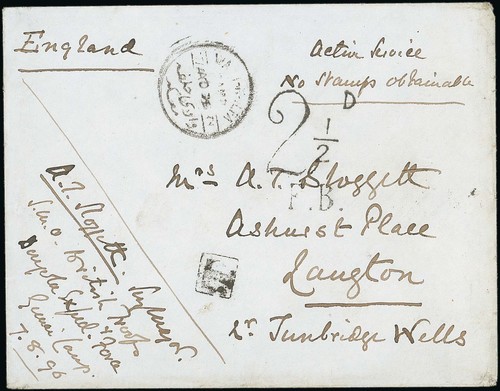 England
Active Service
No Stamps obtainable
D
2 1/2
Mrs A. T. Sloggett
F.B.
Ashurst Place
Langton
Nr Tunbridge Wells
T
A. T. Sloggett. Sug Major.
S.M.O. British Troops
Dongola Exped. Force
Camp.
7.8.96